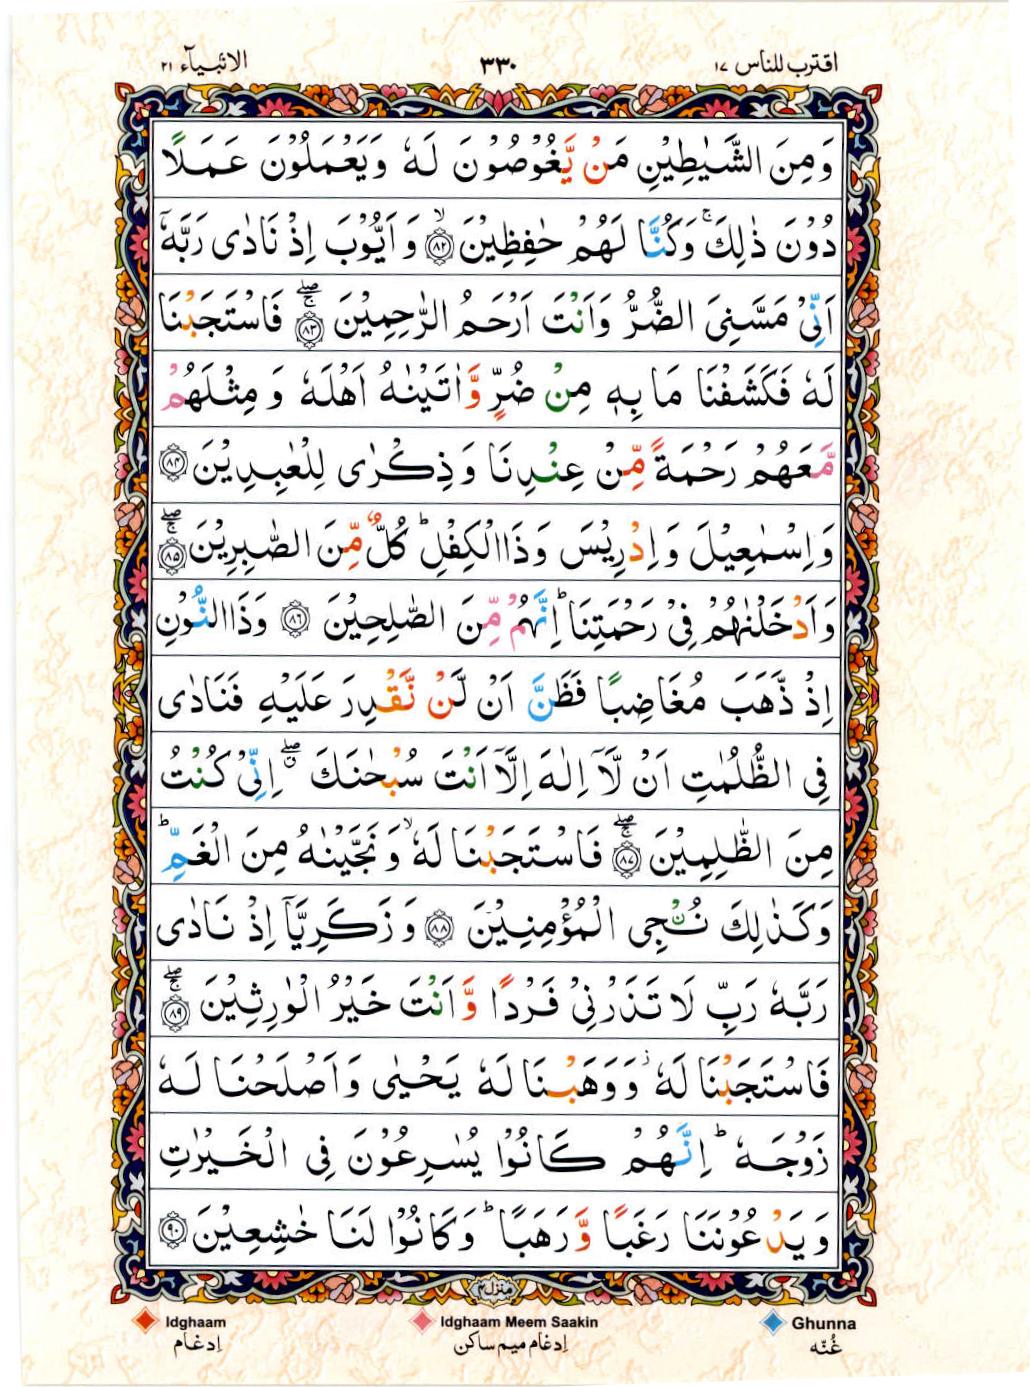 اقترب للناس ١٧
٣٣٠
الانبیآء ٢١
وَمِنَ الشَّيٰطِيْنِ مَنْ يَّغُوْصُوْنَ لَهٗ وَيَعْمَلُوْنَ عَمَلًا
دُوْنَ ذٰلِكَ ۚ وَكُنَّا لَهُمْ حٰفِظِيْنَ ۙ ﴿٨٢﴾ وَاَيُّوْبَ اِذْ نَادٰى رَبَّهٗۤ
اَنِّيْ مَسَّنِيَ الضُّرُّ وَاَنْتَ اَرْحَمُ الرّٰحِمِيْنَ ۖۚ ﴿٨٣﴾ فَاسْتَجَبْنَا
لَهٗ فَكَشَفْنَا مَا بِهٖ مِنْ ضُرٍّ وَّاٰتَيْنٰهُ اَهْلَهٗ وَمِثْلَهُمْ
مَّعَهُمْ رَحْمَةً مِّنْ عِنْدِنَا وَذِكْرٰى لِلْعٰبِدِيْنَ ﴿٨٤﴾
وَاِسْمٰعِيْلَ وَاِدْرِيْسَ وَذَاالْكِفْلِ ؕ كُلٌّ مِّنَ الصّٰبِرِيْنَ ۖۚ ﴿٨٥﴾
وَاَدْخَلْنٰهُمْ فِيْ رَحْمَتِنَا ؕ اِنَّهُمْ مِّنَ الصّٰلِحِيْنَ ﴿٨٦﴾ وَذَاالنُّوْنِ
اِذْ ذَّهَبَ مُغَاضِبًا فَظَنَّ اَنْ لَّنْ نَّقْدِرَ عَلَيْهِ فَنَادٰى
فِى الظُّلُمٰتِ اَنْ لَّاۤ اِلٰهَ اِلَّاۤ اَنْتَ سُبْحٰنَكَ ۖۗ اِنِّيْ كُنْتُ
مِنَ الظّٰلِمِيْنَ ۖۚ ﴿٨٧﴾ فَاسْتَجَبْنَا لَهٗ ۙ وَنَجَّيْنٰهُ مِنَ الْغَمِّ ؕ
وَكَذٰلِكَ نُـنْۢجِى الْمُؤْمِنِيْنَ ﴿٨٨﴾ وَزَكَرِيَّاۤ اِذْ نَادٰى
رَبَّهٗ رَبِّ لَا تَذَرْنِيْ فَرْدًا وَّاَنْتَ خَيْرُ الْوٰرِثِيْنَ ۖۚ ﴿٨٩﴾
فَاسْتَجَبْنَا لَهٗ ؗ وَوَهَبْنَا لَهٗ يَحْيٰى وَاَصْلَحْنَا لَهٗ
زَوْجَهٗ ؕ اِنَّهُمْ كَانُوْا يُسٰرِعُوْنَ فِى الْخَيْرٰتِ
وَيَدْعُوْنَنَا رَغَبًا وَّرَهَبًا ؕ وَكَانُوْا لَنَا خٰشِعِيْنَ ﴿٩٠﴾
منزل ٤
Idghaam
Idghaam Meem Saakin
Ghunna
اِدغام
اِدغام میم ساکن
غُنّه